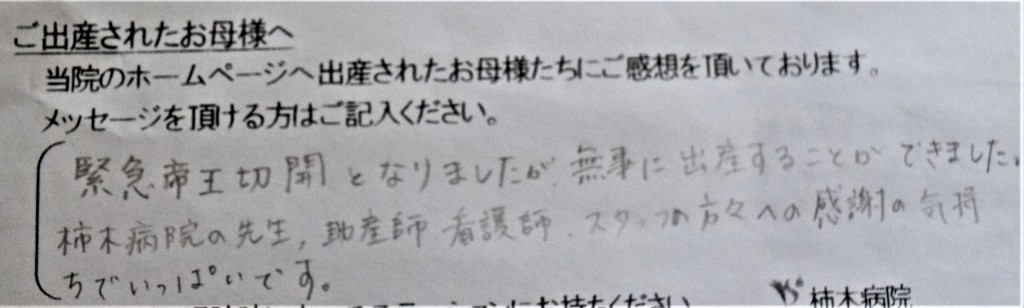 ご出産されたお母様へ
当院のホームページへ出産されたお母様たちにご感想を頂いております。
メッセージを頂ける方はご記入ください。
緊急帝王切開となりましたが、無事に出産することができました。
柿木病院の先生,助産師 看護師、スタッフの方々への感謝の気持
ちでいっぱいです。
にお持ちください
柿木病院